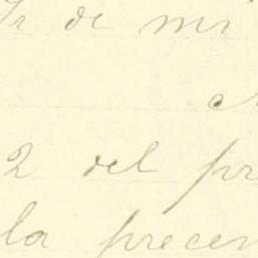 de mi
2 del pr
la precen